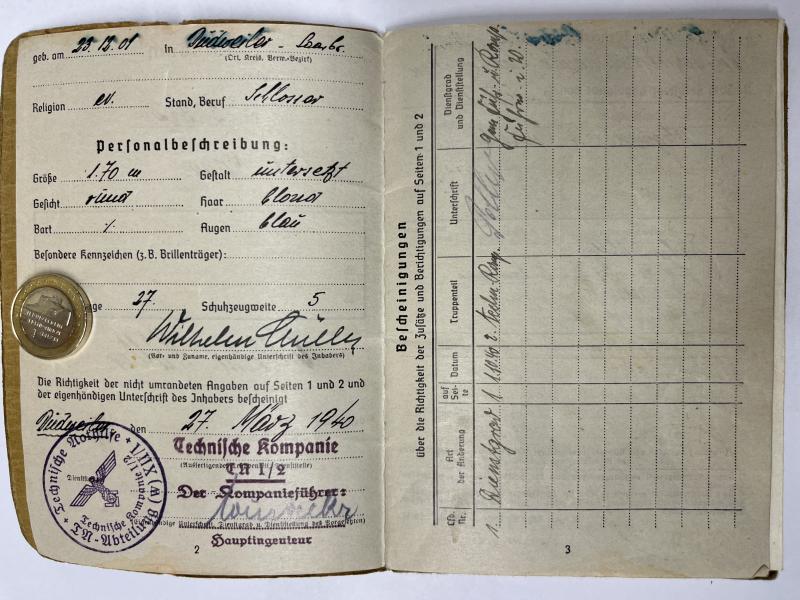 geb. am 23.12.01 in Dudweiler - Saarbr.
(Ort, Kreis, Verw.-Bezirk)
Religion ev. Stand, Beruf Schlosser
Personalbeschreibung:
Größe 1.70 m Gestalt untersetzt
Gesicht rund Haar blond
Bart ⁒ Augen blau
Besondere Kennzeichen (z. B. Brillenträger):
age 27. Schuhzeugweite 5
Wilhelm
(Vor- und Zuname, eigenhändige Unterschrift des Inhabers)
Die Richtigkeit der nicht umrandeten Angaben auf Seiten 1 und 2 und
der eigenhändigen Unterschrift des Inhabers bescheinigt
Dudweiler den 27. März 1940
Technische Kompanie
TN 1/2
Der Kompanieführer:
Hauptingenieur
Technische Nothilfe
TN-Abteilung
Technische Kompanie 1/2
2
Bescheinigungen
über die Richtigkeit der Zusätze und Berichtigungen auf Seiten 1 und 2
Lfd. Nr.
Art der Änderung
auf Seite
Datum
Truppenteil
Unterschrift
Dienstgrad und Dienststellung
1. Dienstgrad 1
3